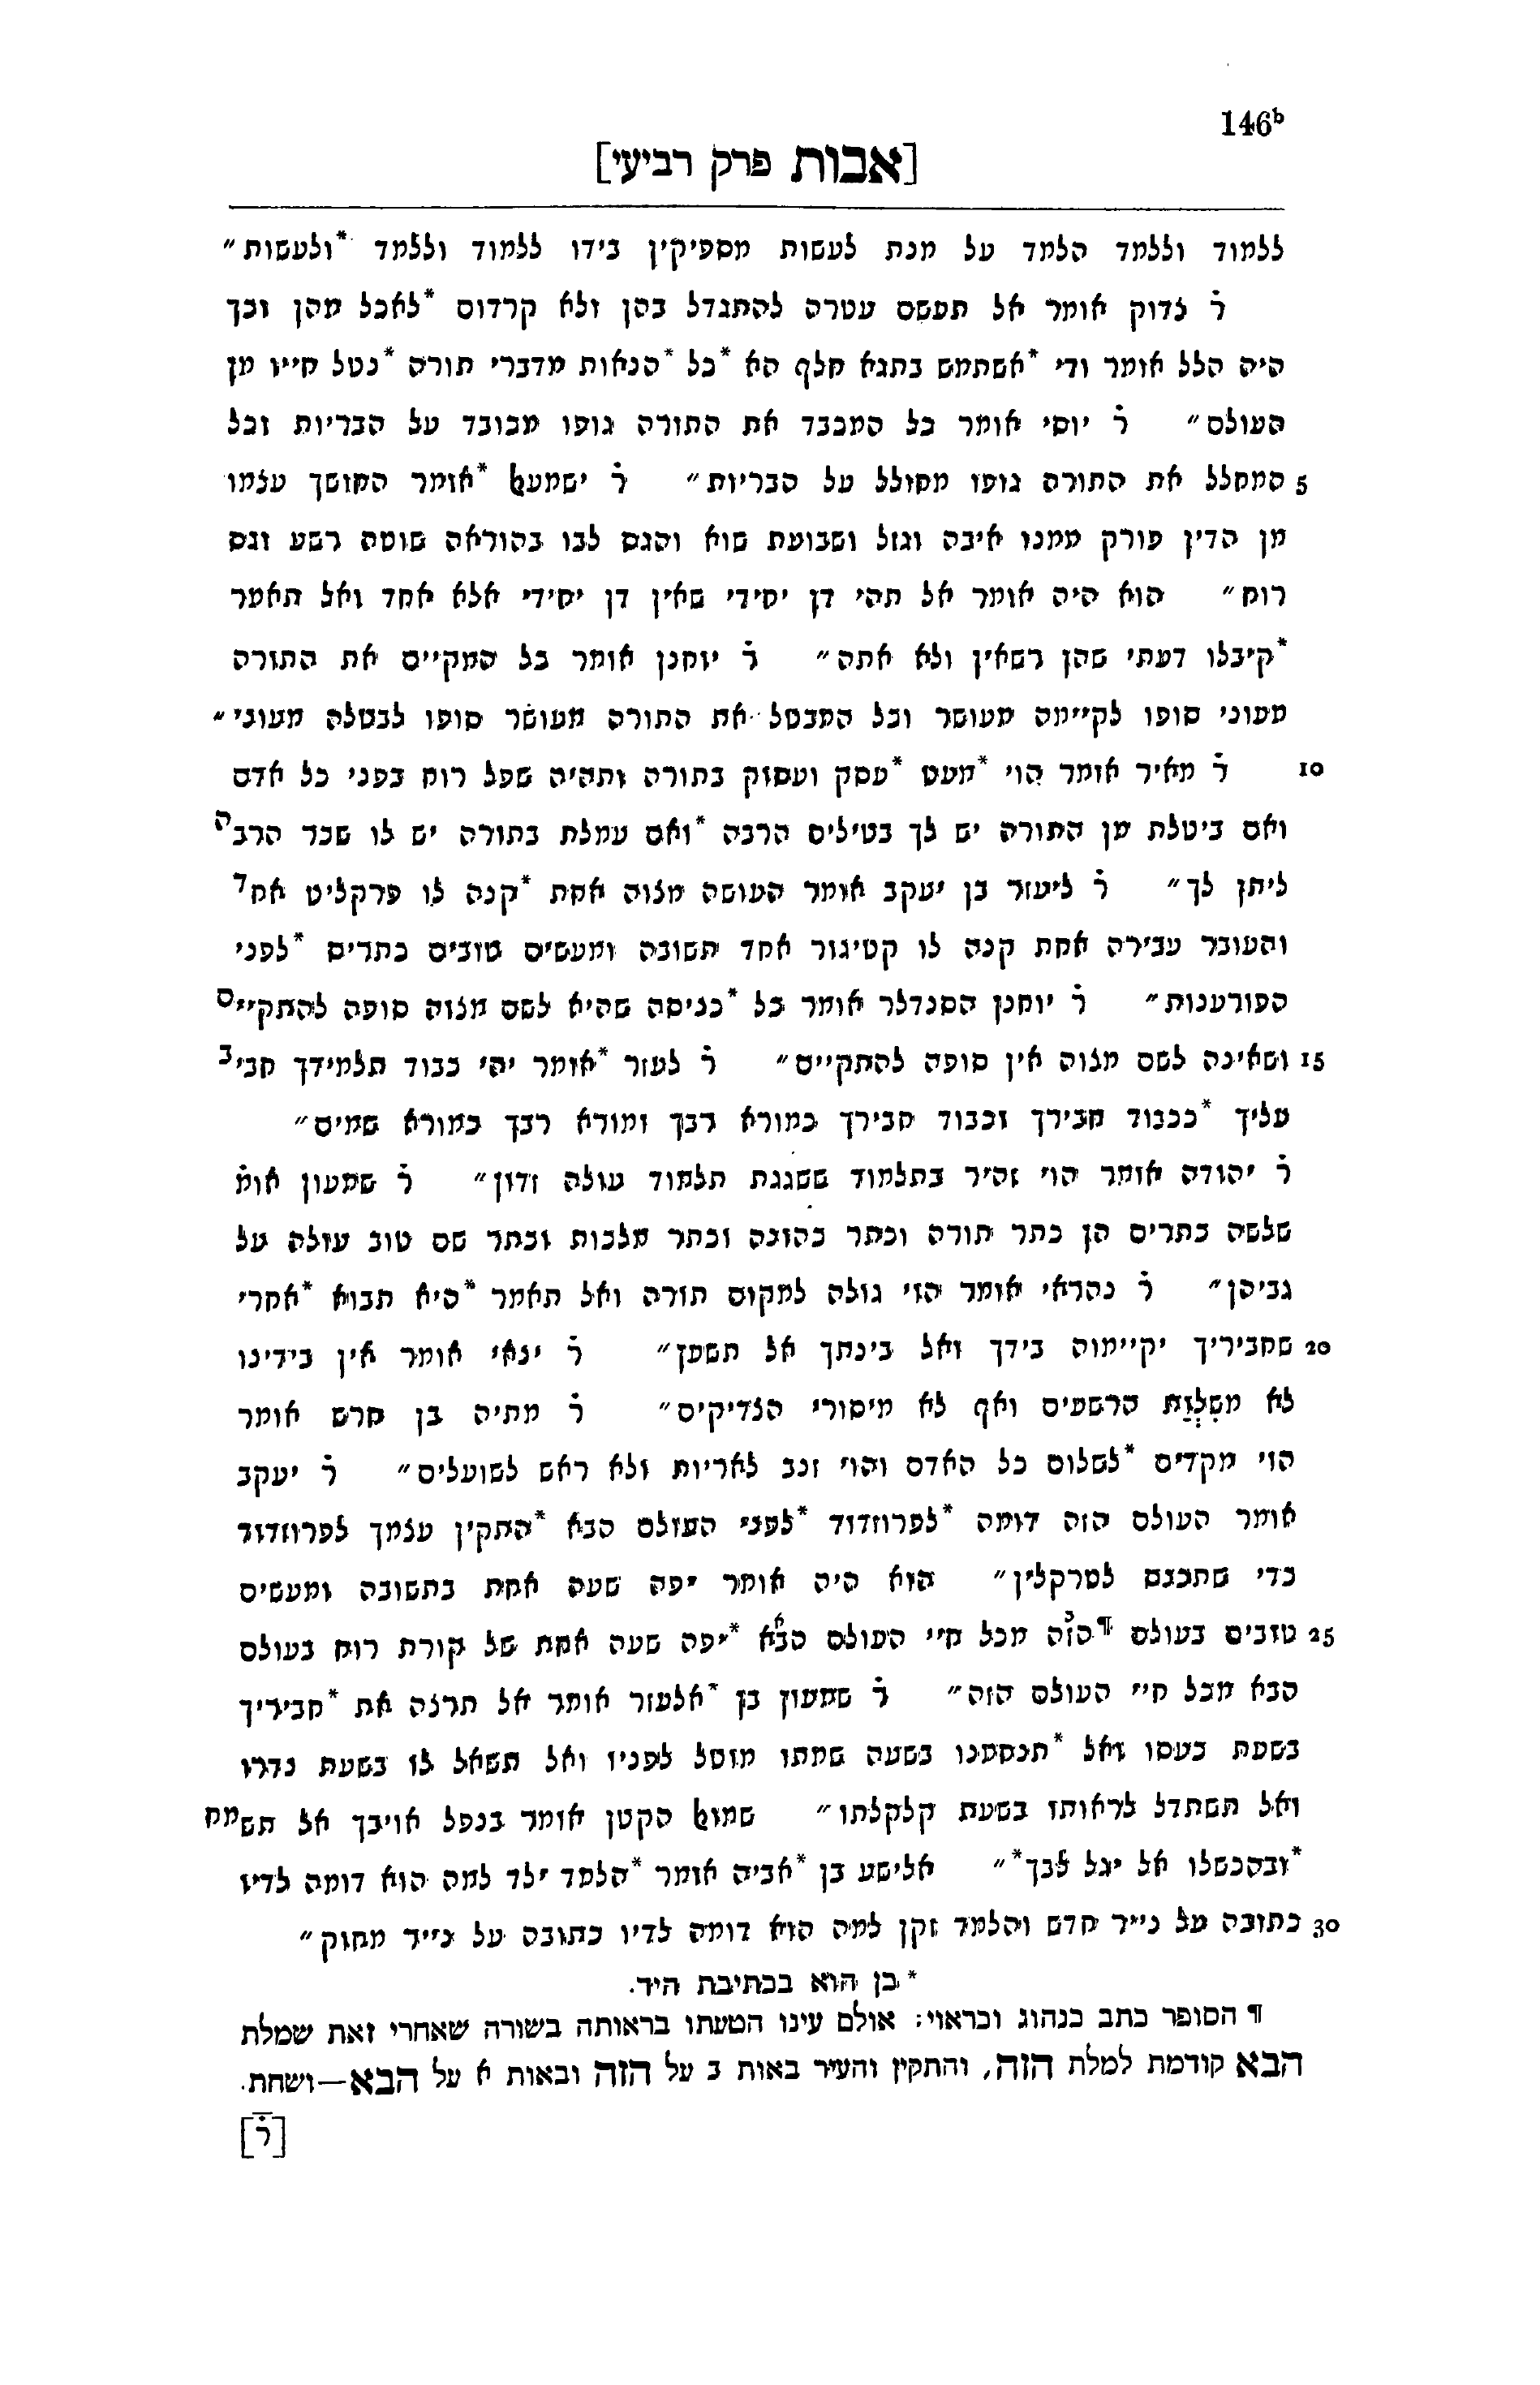 146ᵇ
[אבות פרק רביעי]
ללמוד וללמד הלמד על מנת לעשות מספיקין בידו ללמוד וללמד *ולעשות״
ר̇ צדוק אומר אל תעשם עטרה להתגדל בהן ולא קרדום *לאכל מהן וכך
היה הלל אומר ודי *אשתמש בתגא חלף הא *כל *הנאות מדברי תורה *נטל חייו מן
העולם״ ר̇ יוסי אומר כל המכבד את התורה גופו מכובד על הבריות וכל
5 המחלל את התורה גופו מחולל על הבריות״ ר̇ ישמעאל *אומר החושך עצמו
מן הדין פורק ממנו איבה וגזל ושבועת שוא והגס לבו בהוראה שוטה רשע וגס
רוח״ הוא היה אומר אל תהי דן יחידי שאין דן יחידי אלא אחד ואל תאמר
*קיבלו דעתי שהן רשאין ולא אתה״ ר̇ יוחנן אומר כל המקיים את התורה
מעוני סופו לקיימה מעושר וכל המבטל את התורה מעושר סופו לבטלה מעוני״
10 ר̇ מאיר אומר הוי *מעט *עסק ועסוק בתורה ותהיה שפל רוח בפני כל אדם
ואם ביטלת מן התורה יש לך בטילים הרבה *ואם עמלת בתורה יש לו שכר הרבה
ליתן לך״ ר̇ ליעזר בן יעקב אומר העושה מצוה אחת *קנה לו פרקליט אחד
והעובר עבירה אחת קנה לו קטיגור אחד תשובה ומעשים טובים כתרים *לפני
הפורענות״ ר̇ יוחנן הסנדלר אומר כל *כניסה שהיא לשם מצוה סופה להתקיים
15 ושאינה לשם מצוה אין סופה להתקיים״ ר̇ לעזר *אומר יהי כבוד תלמידך חביב
עליך *ככבוד חבירך וכבוד חבירך כמורא רבך ומורא רבך כמורא שמים״
ר̇ יהודה אומר הוי זהיר בתלמוד ששגגת תלמוד עולה זדון״ ר̇ שמעון אומ̇
שלשה כתרים הן כתר תורה וכתר כהונה וכתר מלכות וכתר שם טוב עולה על
גביהן״ ר̇ נהראי אומר הוי גולה למקום תורה ואל תאמר *היא תבוא *אחרי
20 שחביריך יקיימוה בידך ואל בינתך אל תשען״ ר̇ ינאי אומר אין בידינו
לא משלות הרשעים ואף לא מיסורי הצדיקים״ ר̇ מתיה בן חרש אומר
הוי מקדים *לשלום כל האדם והוי זנב לאריות ולא ראש לשועלים״ ר̇ יעקב
אומר העולם הזה דומה *לפרוזדוד *לפני העולם הבא *התקין עצמך לפרוזדוד
כדי שתכנס לטרקלין״ הוא היה אומר יפה שעה אחת בתשובה ומעשים
25 טובים בעולם ¶הזה מכל חיי העולם הבא *יפה שעה אחת של קורת רוח בעולם
הבא מכל חיי העולם הזה״ ר̇ שמעון בן *אלעזר אומר אל תרצה את *חביריך
בשעת כעסו ואל *תנחמנו בשעה שמתו מוטל לפניו ואל תשאל לו בשעת נדרו
ואל תשתדל לראותו בשעת קלקלתו״ שמואל הקטן אומר בנפל אויבך אל תשמח
*ובהכשלו אל יגל לבך*״ אלישע בן *אביה אומר *הלמד ילד למה הוא דומה לדיו
30 כתובה על נייר חדש והלמד זקן למה הוא דומה לדיו כתובה על נייר מחוק״
*כן הוא בכתיבת היד.
¶ הסופר כתב כנהוג וכראוי: אולם עינו הטעתו בראותה בשורה שאחרי זאת שמלת
הבא קודמת למלת הזה, והתקין והעיר באות ב על הזה ובאות א על הבא—ושחת.
[ר̇]